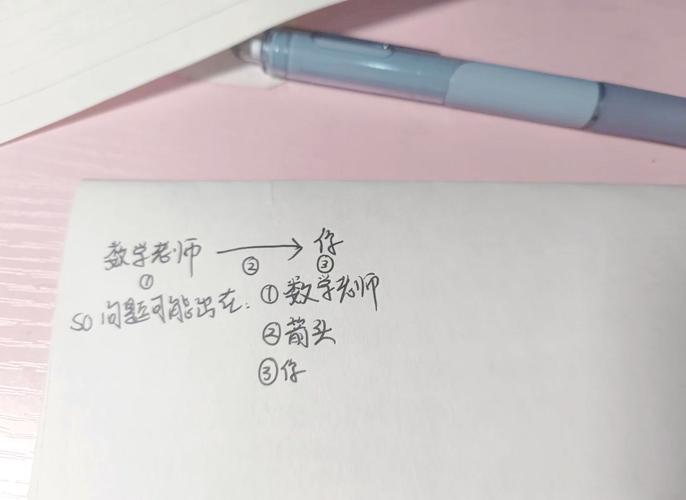 数学老师 → 你
① ② ③
so 问题可能出在: ①数学老师
②箭头
③你